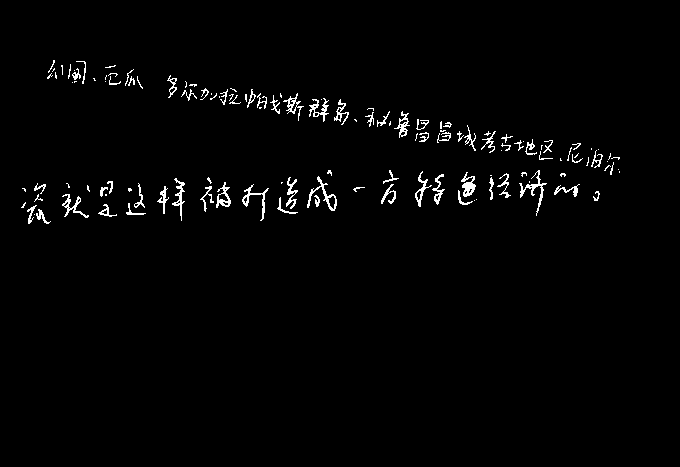 公园、厄瓜 多尔加拉帕戈斯群岛、秘鲁昌昌城考古地区、尼泊尔
瓷就是这样被打造成一方特色经济的。